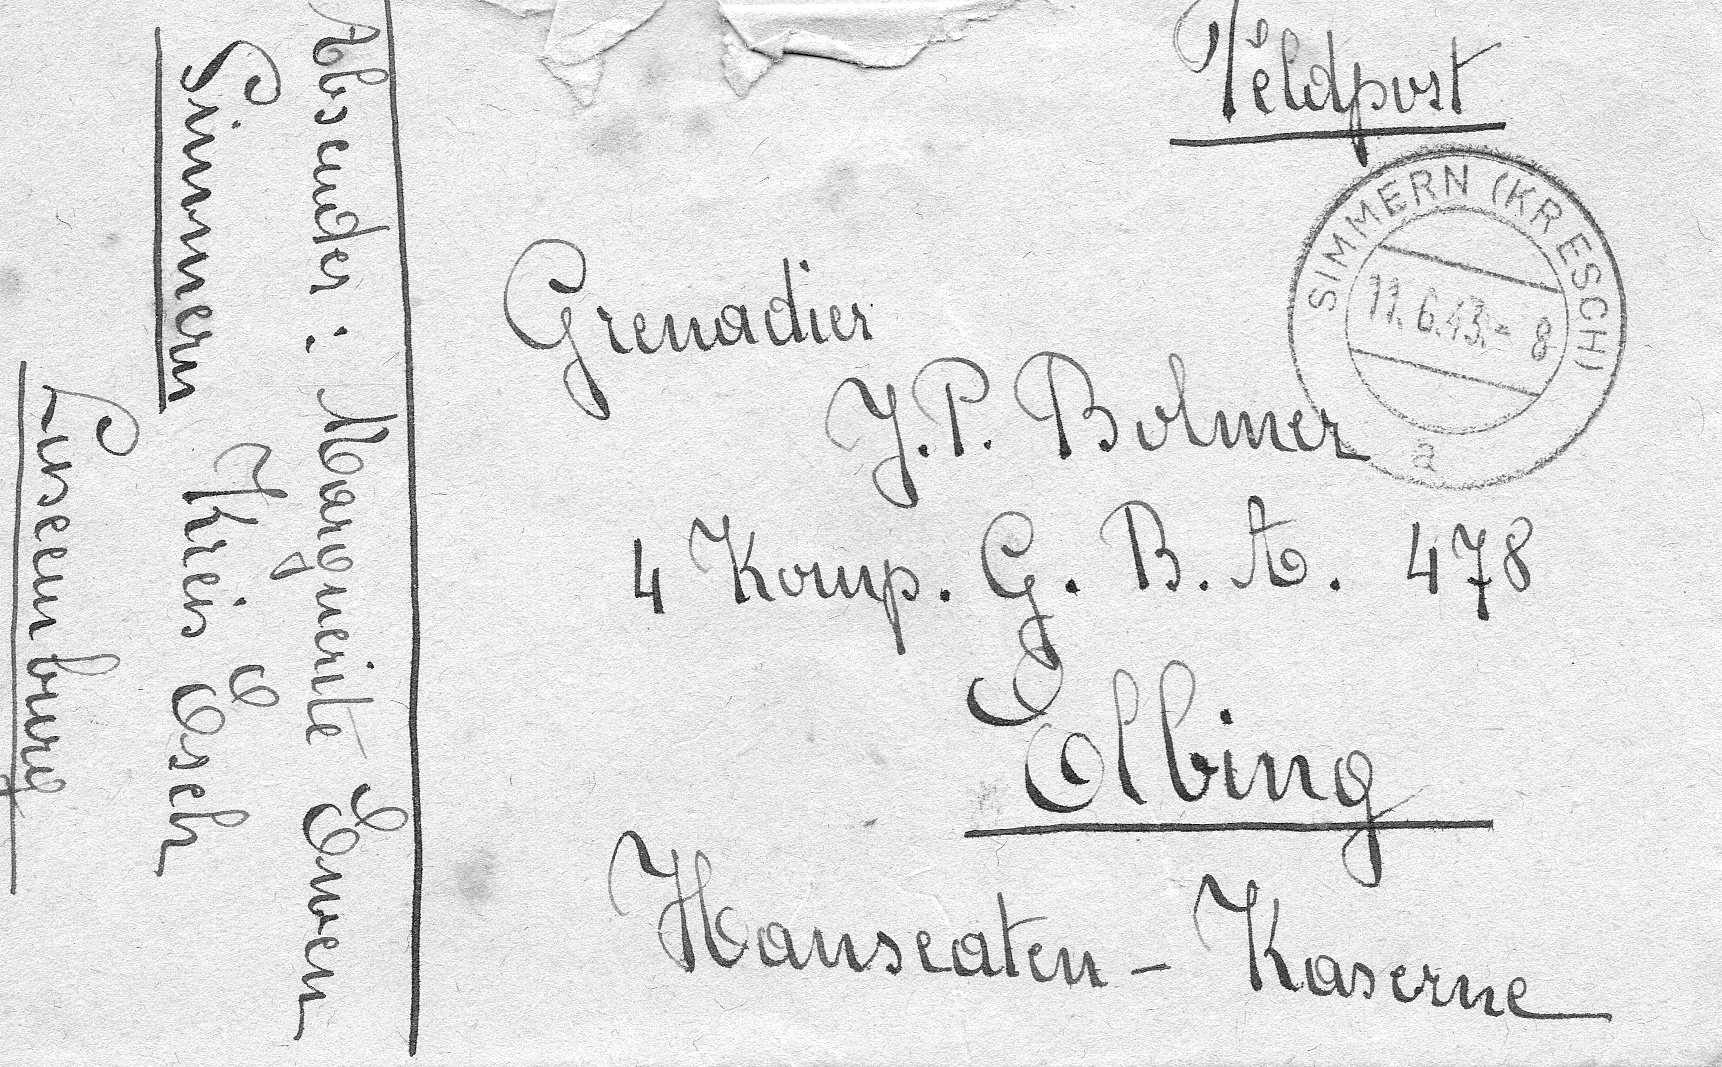 Feldpost
SIMMERN (KR ESCH)
11.6.43.- 8
a
Grenadier
J.P. Bolmer
4 Komp. G. B. A. 478
Elbing
Hanseaten-Kaserne
Absender: Marguerite Ewen
Simmern
Kreis Esch
Luxemburg